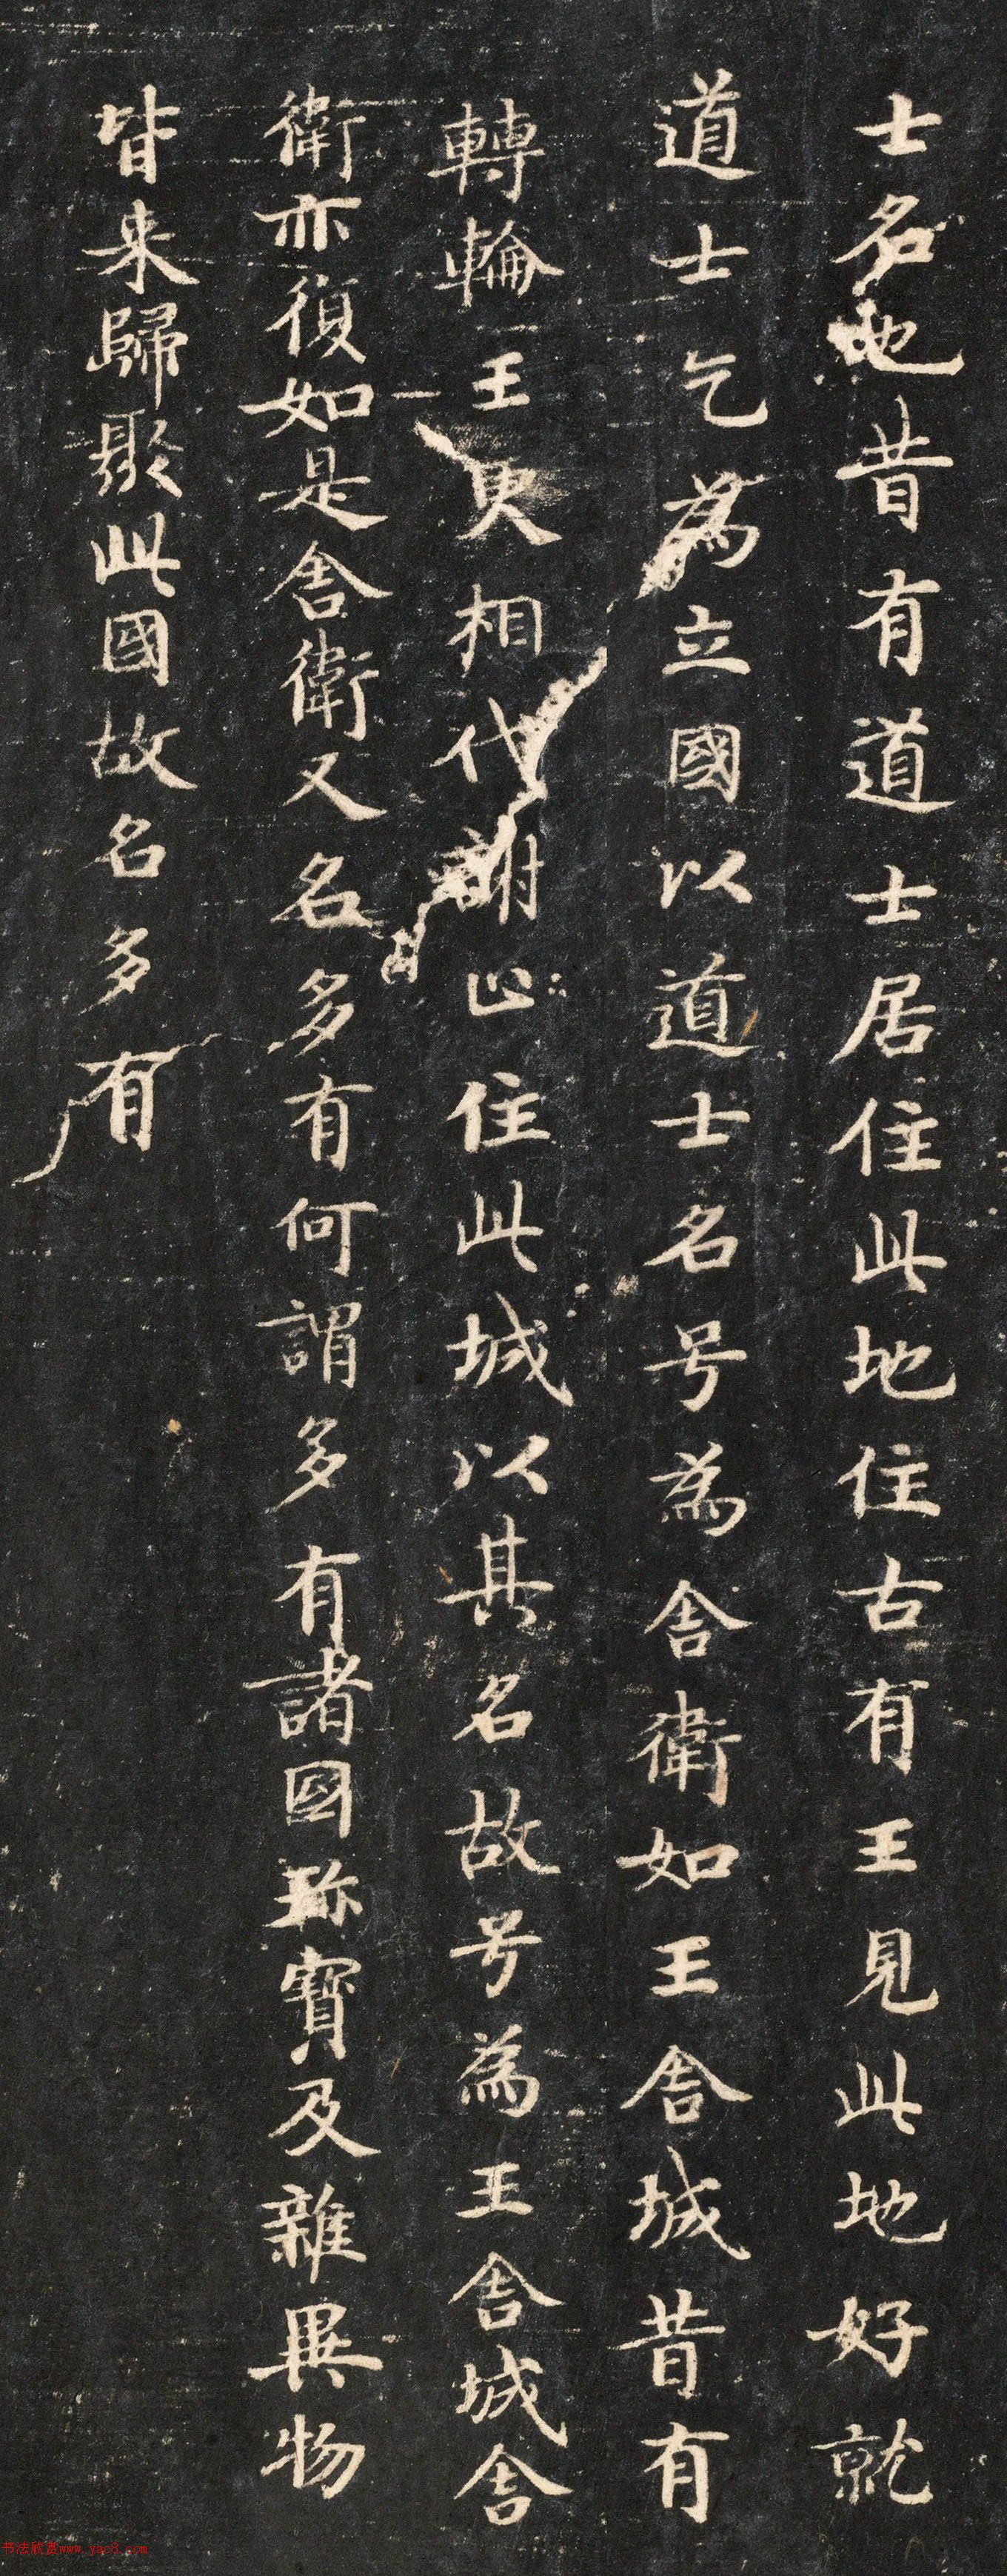 士名也昔有道士居住此地住古有王見此地好就
道士乞為立國以道士名号為舍衛如王舍城昔有
轉輪王更相代謝止住此城以其名故号為王舍城舍
衛亦復如是舍衛又名多有何謂多有諸國珎寶及雜異物
皆来歸聚此國故名多有
书法欣赏www.yac8.com